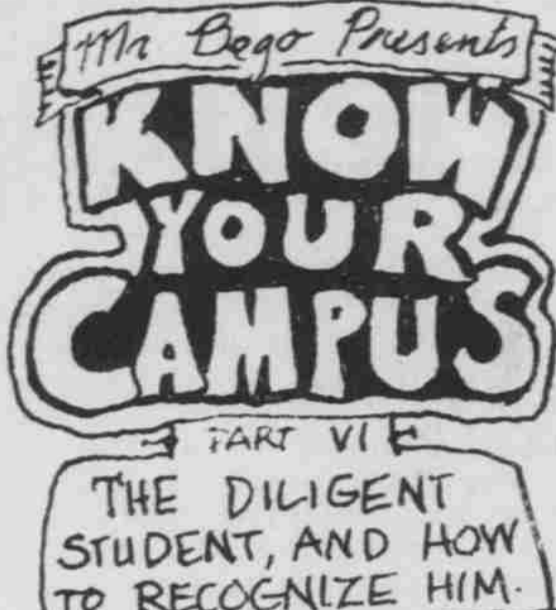 Mr Bego Presents
KNOW
YOUR
CAMPUS
PART VI
THE DILIGENT
STUDENT, AND HOW
TO RECOGNIZE HIM.